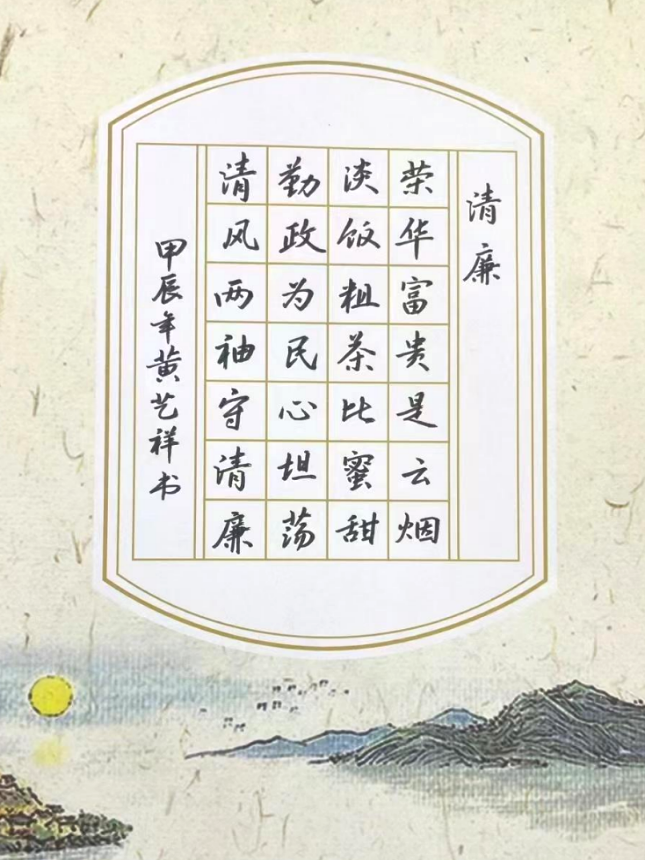 清廉
荣华富贵是云烟
淡饭粗茶比蜜甜
勤政为民心坦荡
清风两袖守清廉
甲辰年黄艺祥书